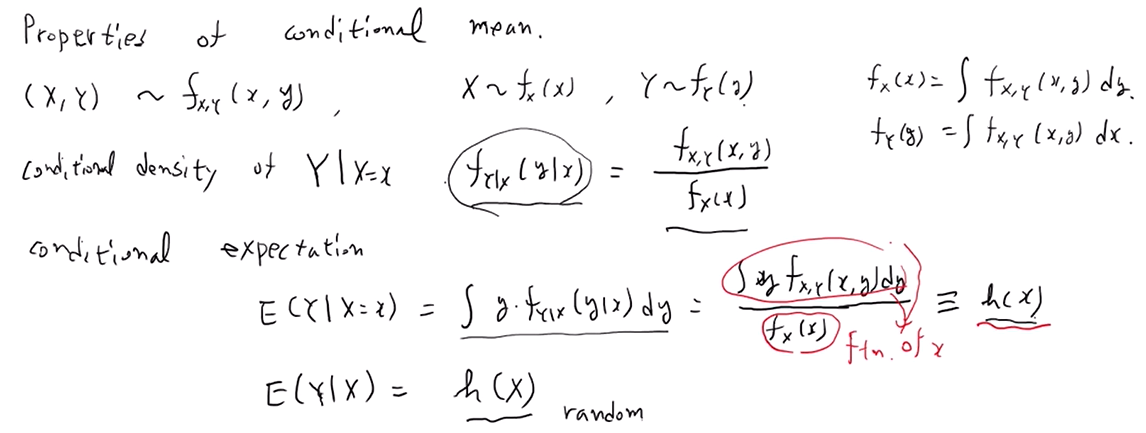 Properties of conditional mean.
(X, Y) ~ f_{X,Y}(x, y), X ~ f_X(x), Y ~ f_Y(y) f_X(x) = ∫ f_{X,Y}(x, y) dy.
f_Y(y) = ∫ f_{X,Y}(x, y) dx.
conditional density of Y|X=x f_{Y|X}(y|x) = f_{X,Y}(x, y) / f_X(x)
conditional expectation
E(Y|X=x) = ∫ y · f_{Y|X}(y|x) dy = ∫ y f_{X,Y}(x, y) dy / f_X(x) ≡ h(x)
ftn. of x
E(Y|X) = h(X) random